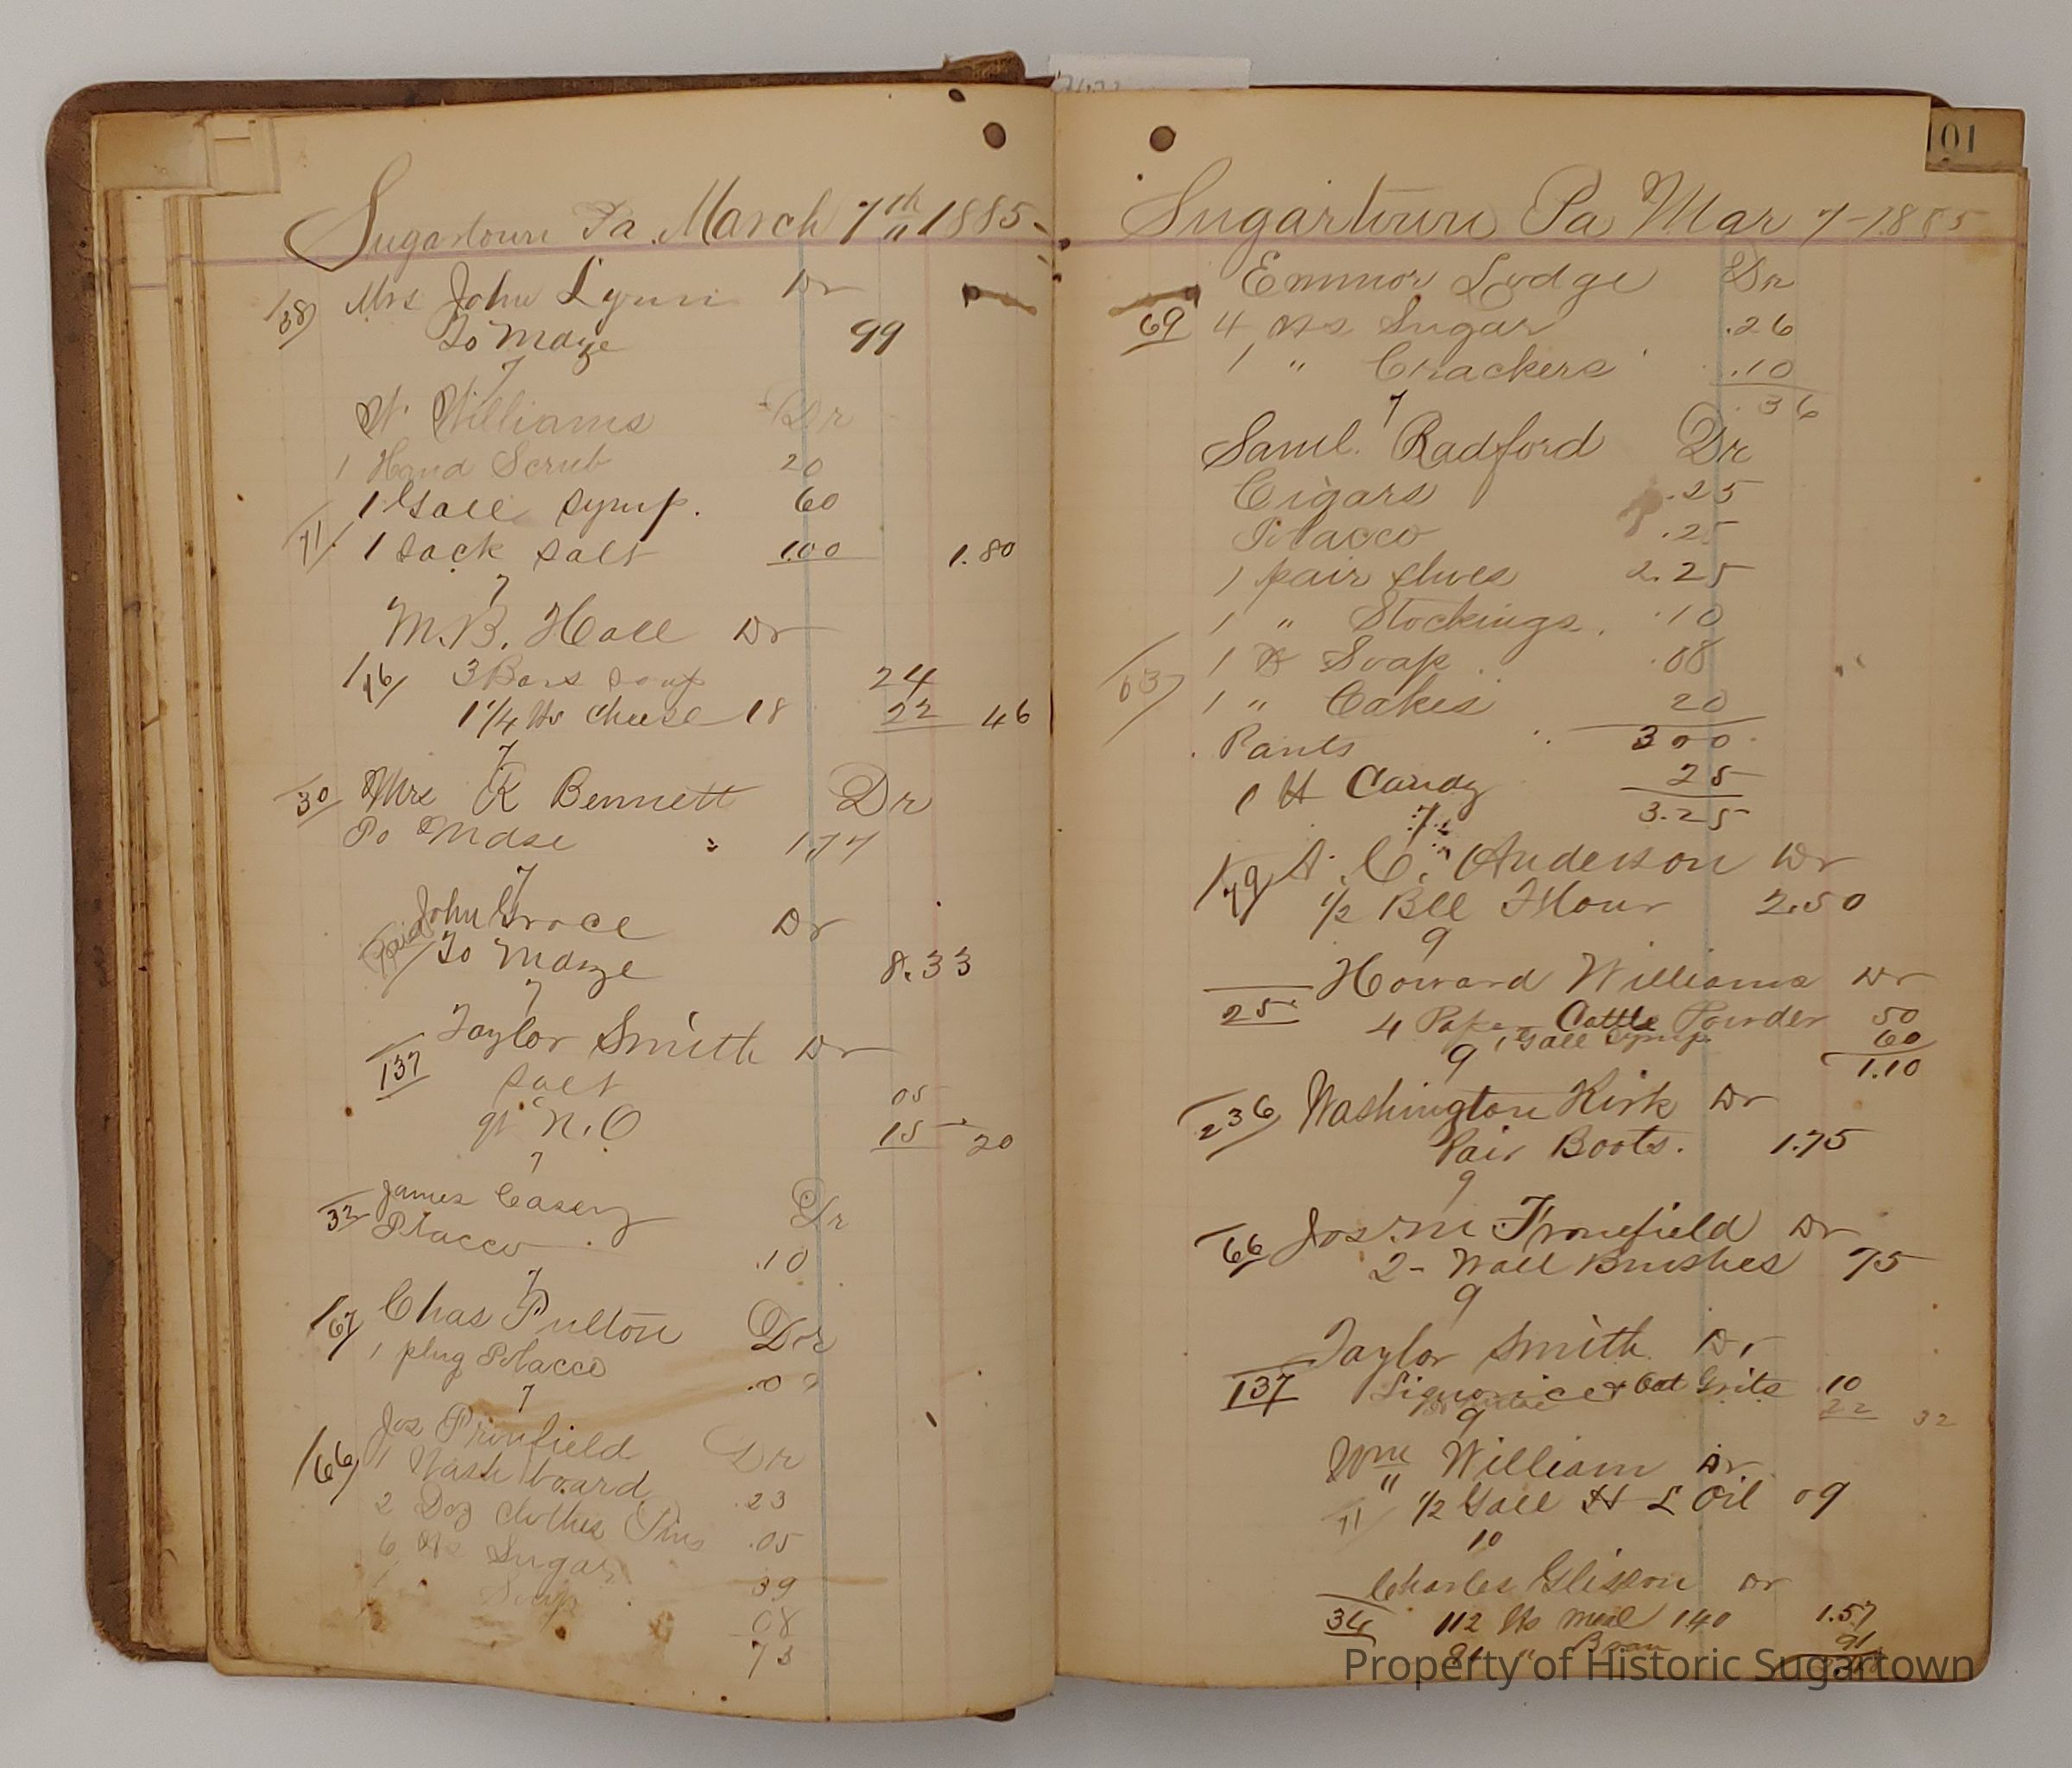 Sugartown Pa. March 7th 1885
138 Mrs John Lynn Dr
To Mdze 99
7
W Williams Dr
1 Hand Scrub 20
1 Gall Syrup. 60
71 1 sack salt 1.00 1.80
7
M. B. Hall Dr
16 3 Bars soap 24
1 1/4 lbs cheese 18 22 46
7
30 Mrs R Bennett Dr
To Mdse 1,77
7
John Grace Dr
Paid To Mdze 8.33
7
Taylor Smith Dr
137
salt 05
qt N.O 15 20
7
James Casey Dr
32 Tobacco .10
7
167 Chas Pulton Dr
1 plug Tobacco .09
7
Jos Frinfield Dr
166 1 Wash board .23
2 Doz clothes Pins .05
6 lbs Sugar 39
1 Soap 08
73
101
Sugartown Pa Mar 7-1885
Emmor Lodge Dr
69 4 lbs Sugar .26
1 " Crackers .10
.36
7
Saml. Radford Dr
Cigars .25
Tobacco .25
1 pair shoes 2.25
1 " Stockings. .10
63 1 lb Soap .08
1 " Cakes 20
Pants 300
1 lb Candy 25
3.25
7
179 A. C. Anderson Dr
1/2 Bll Flour 2.50
9
Howard Williams Dr
25 4 Paper Cattle Powder 50
1 Gall Syrup 60
9 1.10
236 Washington Kirk Dr
Pair Boots. 1.75
9
66 Jos. M Fronefield Dr
2- Wall Brushes 75
9
Taylor Smith Dr
137 Liquorice & Oat Grits 10
22 32
9
Wm William Dr
71 " 1/2 Gall H L Oil 09
10
Charles Glisson Dr
34 112 lbs meal 140 1.57
81 " Bran 91
Property of Historic Sugartown